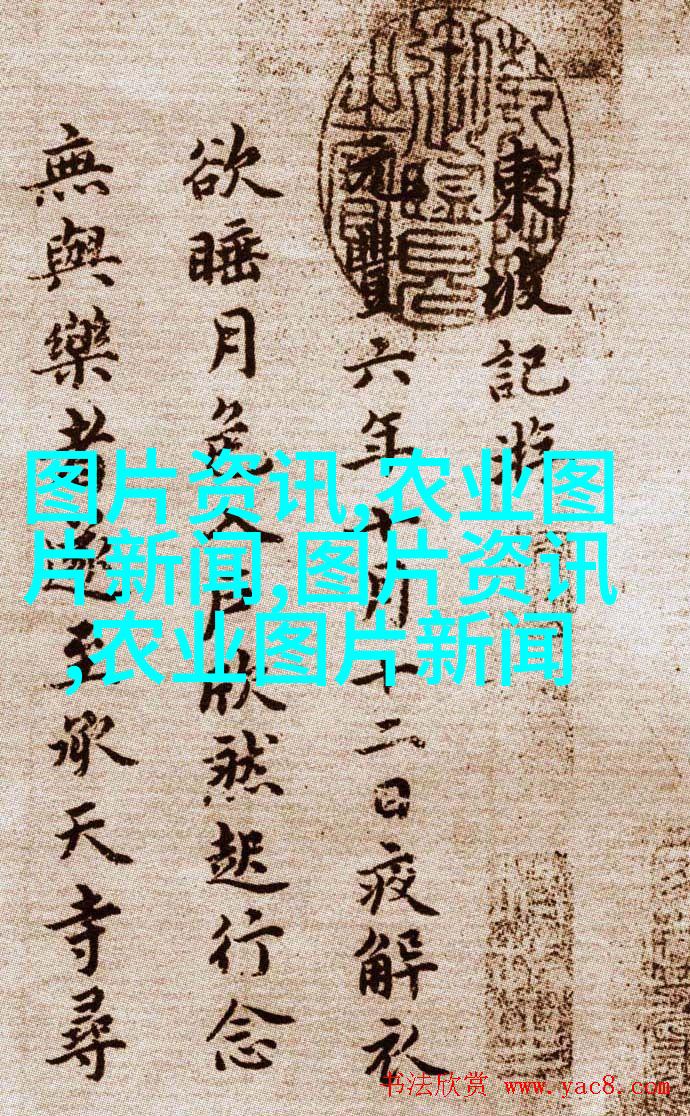 東坡記游
元豐六年十月十二日夜解衣
欲睡月色入户欣然起行念
無與樂者遂至承天寺尋
图片资讯,农业图
片新闻,图片资讯
,农业图片新闻
书法欣赏 www.yac8.com